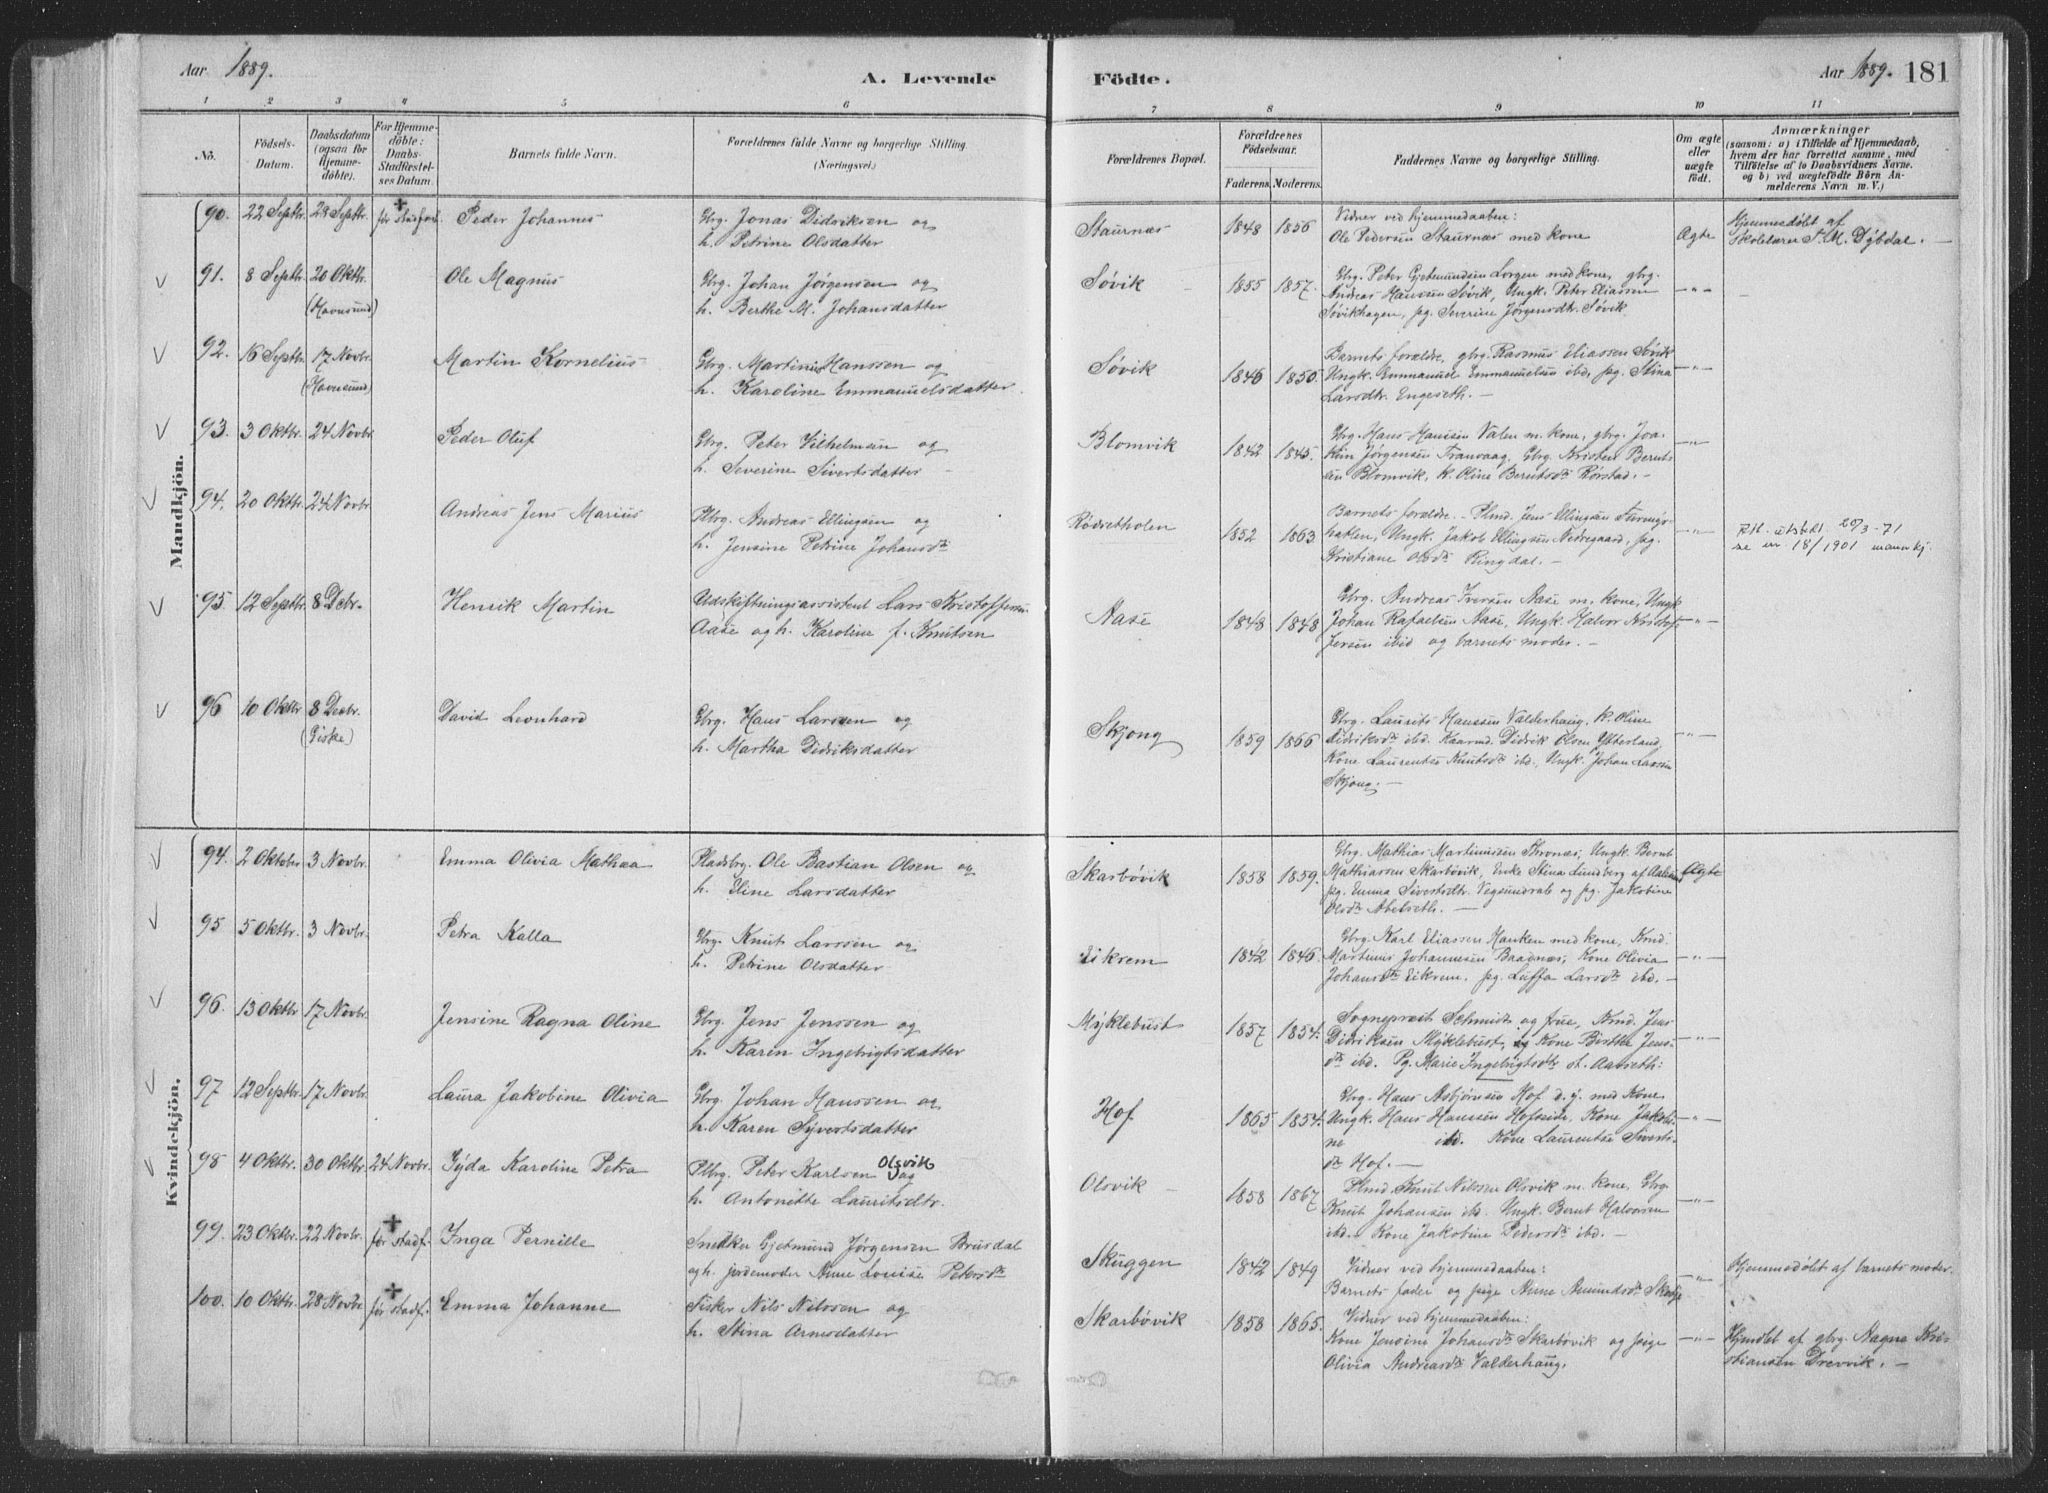 Aar 1889.
A. Levende
Födte.
Aar 1889. 181
1 2 3 4 5 6 7 8 9 10 11
No.
Födsels-Datum.
Daabsdatum (ogsaa for Hjemme-döbte).
For Hjemme-döbte: Daabs-Stadfæstel-ses Datum.
Barnets fulde Navn.
Forældrenes fulde Navne og borgerlige Stilling.
(Næringsvei.)
Forældrenes Bopæl.
Forældrenes Födselsaar.
Faderens. Moderens.
Faddernes Navne og borgerlige Stilling.
Om ægte eller uægte födt.
Anmærkninger
(saasom: a) i Tilfælde af Hjemmedaab,
hvem der har forrettet samme, med
Tilföielse af to Daabsvidners Navne,
og b) ved uægtefödte Börn An-
melderens Navn m. V.)
Mandkjön.
90. 22 Septbr. 28 Septbr. + før stadfæst. Peder Johannes
Gbrg. Jonas Didriksen og
h. Petrine Olsdatter
Staurnæs 1848 1856
Vidner ved hjemmedaaben:
Ole Pedersen Staurnæs med kone
Ægte
Hjemmedøbt af
Skolelærer S. M. Dybdal. —
91. 8 Septbr. 20 Oktbr. (Havnsund) Ole Magnus
Gbrg. Johan Jørgensen og
h. Berthe M. Johansdatter
Søvik 1855 1857.
Gbrg. Peter Gjetmundsen Lorgen med kone, gbrg.
Andreas Hansen Søvik, Ungk. Peter Eliassen
Søvikhagen, pg. Severine Jørgensdtr. Søvik.
—"—
92. 16 Septbr. 17 Novbr. (Havnsund) Martin Kornelius
Gbrg. Martinus Hanssen og
h. Karoline Emmanuelsdatter.
Søvik 1846 1850.
Barnets forældre, gbrg. Rasmus Eliassen Søvik
Ungk. Emmanuel Emmanuelsen ibd, pg. Stina
Larsdtr. Engeseth. —
—"—
93. 3 Oktbr. 24 Novbr. Peder Oluf
Gbrg. Peter Vilhelmsen og
h. Severine Sivertsdatter —
Blomvik 1842 1845.
Gbrg. Hans Hansen Valen m. kone, gbrg. Joa-
kim Jørgensen Tranvaag, Gbrg. Kristen Bernts-
en Blomvik, k. Oline Berntsdtr Rørstad. —
—"—
94. 20 Oktbr. 24 Novbr. Andreas Jens Marius
Plbrg. Andreas Ellingsen og
h. Jensine Petrine Johansdtr
Rødsetholen 1852 1863
Barnets forældre. — Plmd. Jens Ellingsen
Ungk. Jakob Ellingsen Nedregaard, pg.
Kristiane Olsdtr Ringdal. —
—"—
utstedt. 20/3-71
se nr. 18/1901 mannkj.
95. 12 Septbr. 8 Debr. Henrik Martin
Udskiftningsassistent Lars Kristoffersen
Aase og h. Karoline f. Knutsen
Aase 1848 1848
Gbrg. Andreas Iversen Aase m. kone, Ungk
Johan Rafaelsen Aase, Ungk. Halvor Kristof-
fersen ibid og barnets moder. —
—"—
96 10 Oktbr 8 Decbr. (Giske) David Leonhard
Gbrg. Hans Larssen og
h. Martha Didriksdatter
Skjong 1859 1866
Gbrg. Laurits Hanssen Valderhaug, k. Oline
Didriksdtr ibd. Kaarmd. Didrik Olsen Ytterland,
Kone Laurentse Knutsdtr ibd, Ungk. Johan Larssen
Skjong. —
—"—
Kvindekjön.
94. 2 Oktober 3 Novbr. Emma Olivia Mathea
Pladsbrg. Ole Bastian Olsen og
h. Eline Larsdatter
Skarbøvik 1858 1859.
Gbrg. Mathias Martinussen Thronæs, Ungk. Bernt
Mathiassen Skarbøvik, Enke Stina Lundberg af Aalesund
pg. Emma Sivertsdtr. Vegsundrab og pg. Jakobine
Olsdtr Abelseth. —
Ægte
95 5 Oktbr. 3 Novbr. Petra Kalla
Gbrg. Knut Larssen og
h. Petrine Olsdatter
Eikrem 1842 1846.
Gbrg. Karl Eliassen Hanken med kone, Kmd.
Martinus Johannesen Baadnæs, Kone Olivia
Johansdtr Eikrem, pg. Luffa Larsdtr ibd. —
—"—
96. 13 Oktbr 17 Novbr. Jensine Ragna Oline
Gbrg. Jens Jenssen og
h. Karen Ingebrigtsdatter
Myklebust 1857 1854.
Sogneprest Schmidt og frue, Kmd. Jens
Didriksen Myklebust, og Kone Birthe Jens-
dtr ibd. Pg. Marie Ingebrigtsdtr st. Aarseth.
—"—
97 12 Septbr. 17 Novbr. Laura Jakobine Olivia
Gbrg. Johan Hanssen og
h. Karen Syvertsdatter
Hof 1865 1854.
Gbrg. Hans Asbjørnsen Hof d. y. med Kone,
Ungk. Hans Hanssen Hofseide, Kone Jakobi-
ne ibd. Kone Laurentse Siverts-
dtr Hof. —
—"—
98 4 Oktbr. 30 Oktbr. 24 Novbr. Gyda Karoline Petra
Plbrg. Peter Karlsen Olsvik og
h. Antonette Lauritsdtr.
Olsvik — 1858 1867
Plmd Knut Nilssen Olsvik m. kone, Gbrg.
Knut Johansen ibd. Ungk. Bernt Halvorsen
ibd. Kone Jakobine Pedersdtr ibd. —
—"—
99. 23 Oktbr. 22 Novbr. + før stadf. Inga Pernille
Snedker Gjetmund Jørgensen Brusdal
og h. jordemoder Anne Louise Petersdtr
Skuggen 1842 1849
Vidner ved hjemmedaaben:
Barnets fader og pige Anne Amundsdtr
—"—
Hjemmedøbt af barnets moder.
100. 10 Oktbr. 28 Novbr + før stadf. Emma Johanne
Fisker Nils Nilssen og
h. Stina Arnesdatter
Skarbøvik 1858 1865.
Vidner ved hjemmedaaben:
Kone Jensine Johansdtr Skarbøvik og pige
Olivia Andreasdtr Valderhaug.
—"—
Hjemdøbt af gbrg. Magne Kri-
stiansen Drevvik. —